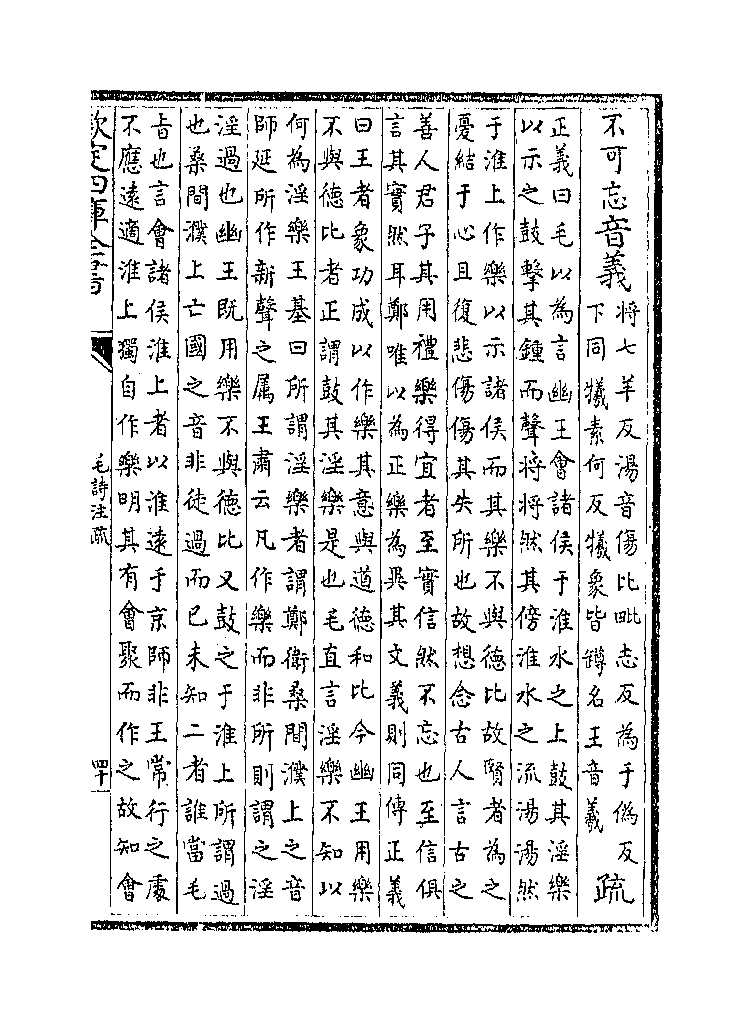 不可忘音義
將七羊反湯音傷比毗志反為于偽反
下同犧素何反犧象皆罇名王音羲
疏
正義曰毛以為言幽王會諸侯于淮水之上鼓其淫樂
以示之鼓擊其鍾而聲將將然其傍淮水之流湯湯然
于淮上作樂以示諸侯而其樂不與德比故賢者為之
憂結于心且復悲傷傷其失所也故想念古人言古之
善人君子其用禮樂得宜者至實信然不忘也至信俱
言其實然耳鄭唯以為正樂為異其文義則同傳正義
曰王者象功成以作樂其意與道德和比今幽王用樂
不與德比者正謂鼓其淫樂是也毛直言淫樂不知以
何為淫樂王基曰所謂淫樂者謂鄭衛桑間濮上之音
師延所作新聲之属王肅云凡作樂而非所則謂之淫
淫過也幽王既用樂不與德比又鼓之于淮上所謂過
也桑間濮上亡國之音非徒過而已未知二者誰當毛
㫖也言會諸侯淮上者以淮遠于京師非王常行之處
不應遠適淮上獨自作樂明其有會聚而作之故知會
欽定四庫全書
毛詩注疏
四十